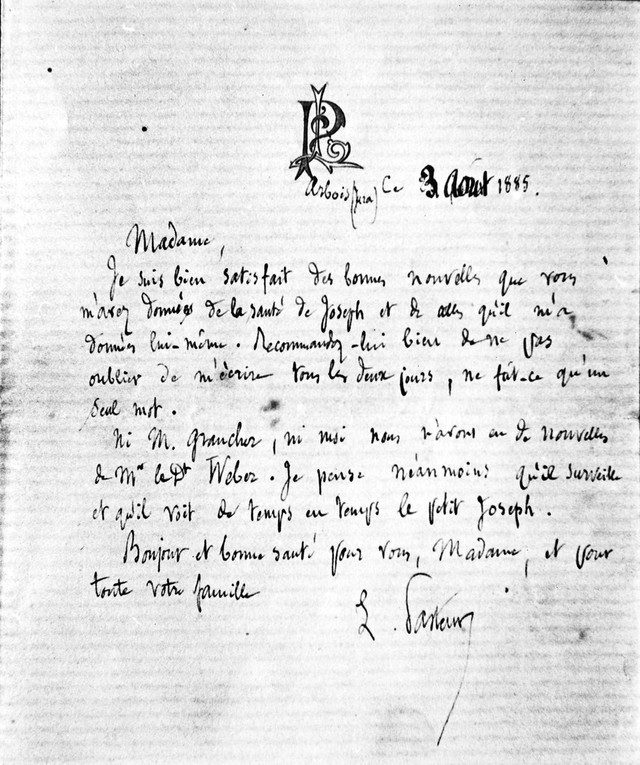 LP
Arbois (Jura) Ce 3 Août 1885.
Madame,
Je suis bien satisfait des bonnes nouvelles que vous
m'avez données de la santé de Joseph et de celles qu'il m'a
données lui-même. Recommandez-lui bien de ne pas
oublier de m'écrire tous les deux jours, ne fût-ce qu'un
seul mot.
Ni M. Grancher, ni moi nous n'avons eu de nouvelles
de Mr le Dr Weber. Je pense néanmoins qu'il surveille
et qu'il voit de temps en temps le petit Joseph.
Bonjour et bonne santé pour vous, Madame, et pour
toute votre famille
L. Pasteur